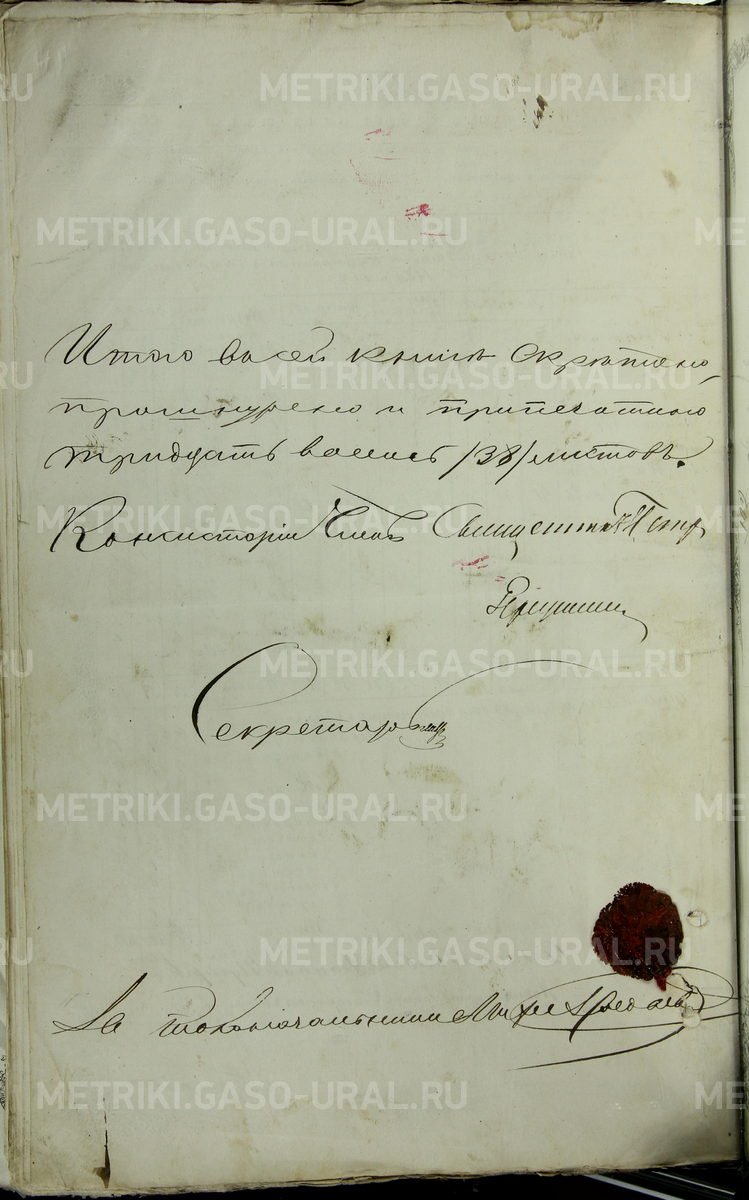 METRIKI.GASO-URAL.RU
METRIKI.GASO-URAL.RU
Итого в сей книгѣ скрѣплено,
прошнурено и припечатано
тридцать восемь /38/ листовъ.
Консисторіи Членъ Священникъ Петр
Секретарь
METRIKI.GASO-URAL.RU
METRIKI.GASO-URAL.RU
За столоначальника
METRIKI.GASO-URAL.RU